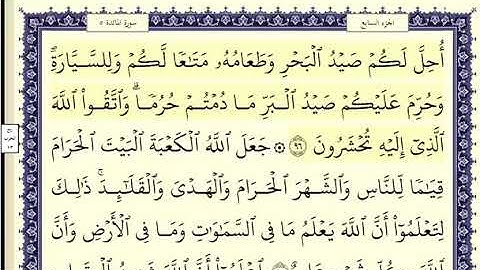 الجزء السابع
سورة المائدة ٥
أُحِلَّ لَكُمْ صَيْدُ ٱلْبَحْرِ وَطَعَامُهُۥ مَتَٰعًا لَّكُمْ وَلِلسَّيَّارَةِۖ
وَحُرِّمَ عَلَيْكُمْ صَيْدُ ٱلْبَرِّ مَا دُمْتُمْ حُرُمًاۗ وَٱتَّقُوا۟ ٱللَّهَ
ٱلَّذِىٓ إِلَيْهِ تُحْشَرُونَ ٩٦ ۞ جَعَلَ ٱللَّهُ ٱلْكَعْبَةَ ٱلْبَيْتَ ٱلْحَرَامَ
قِيَٰمًا لِّلنَّاسِ وَٱلشَّهْرَ ٱلْحَرَامَ وَٱلْهَدْىَ وَٱلْقَلَٰٓئِدَۚ ذَٰلِكَ
لِتَعْلَمُوٓا۟ أَنَّ ٱللَّهَ يَعْلَمُ مَا فِى ٱلسَّمَٰوَٰتِ وَمَا فِى ٱلْأَرْضِ وَأَنَّ